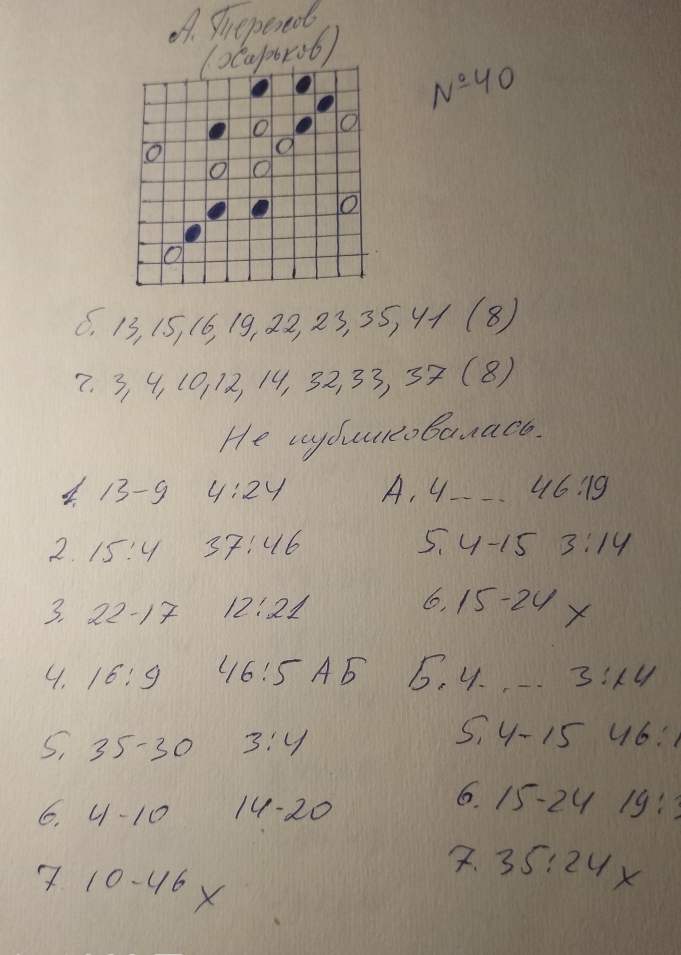 А. Терехов
(Харьков)
№40
б. 13, 15, 16, 19, 22, 23, 35, 41 (8)
ч. 3, 4, 10, 12, 14, 32, 33, 37 (8)
Не публиковалась.
1. 13-9 4:24
2. 15:4 37:46
3. 22-17 12:21
4. 16:9 46:5 А Б
5. 35-30 3:4
6. 4-10 14-20
7. 10-46 х
А. 4.... 46:19
5. 4-15 3:14
6. 15-24 х
Б. 4. ... 3:14
5. 4-15 46:1
6. 15-24 19:3
7. 35:24 х